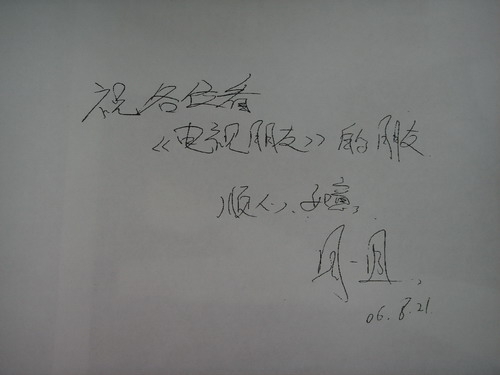 祝各位看
《电视朋友》的朋友
顺心、如意,
06.8.21